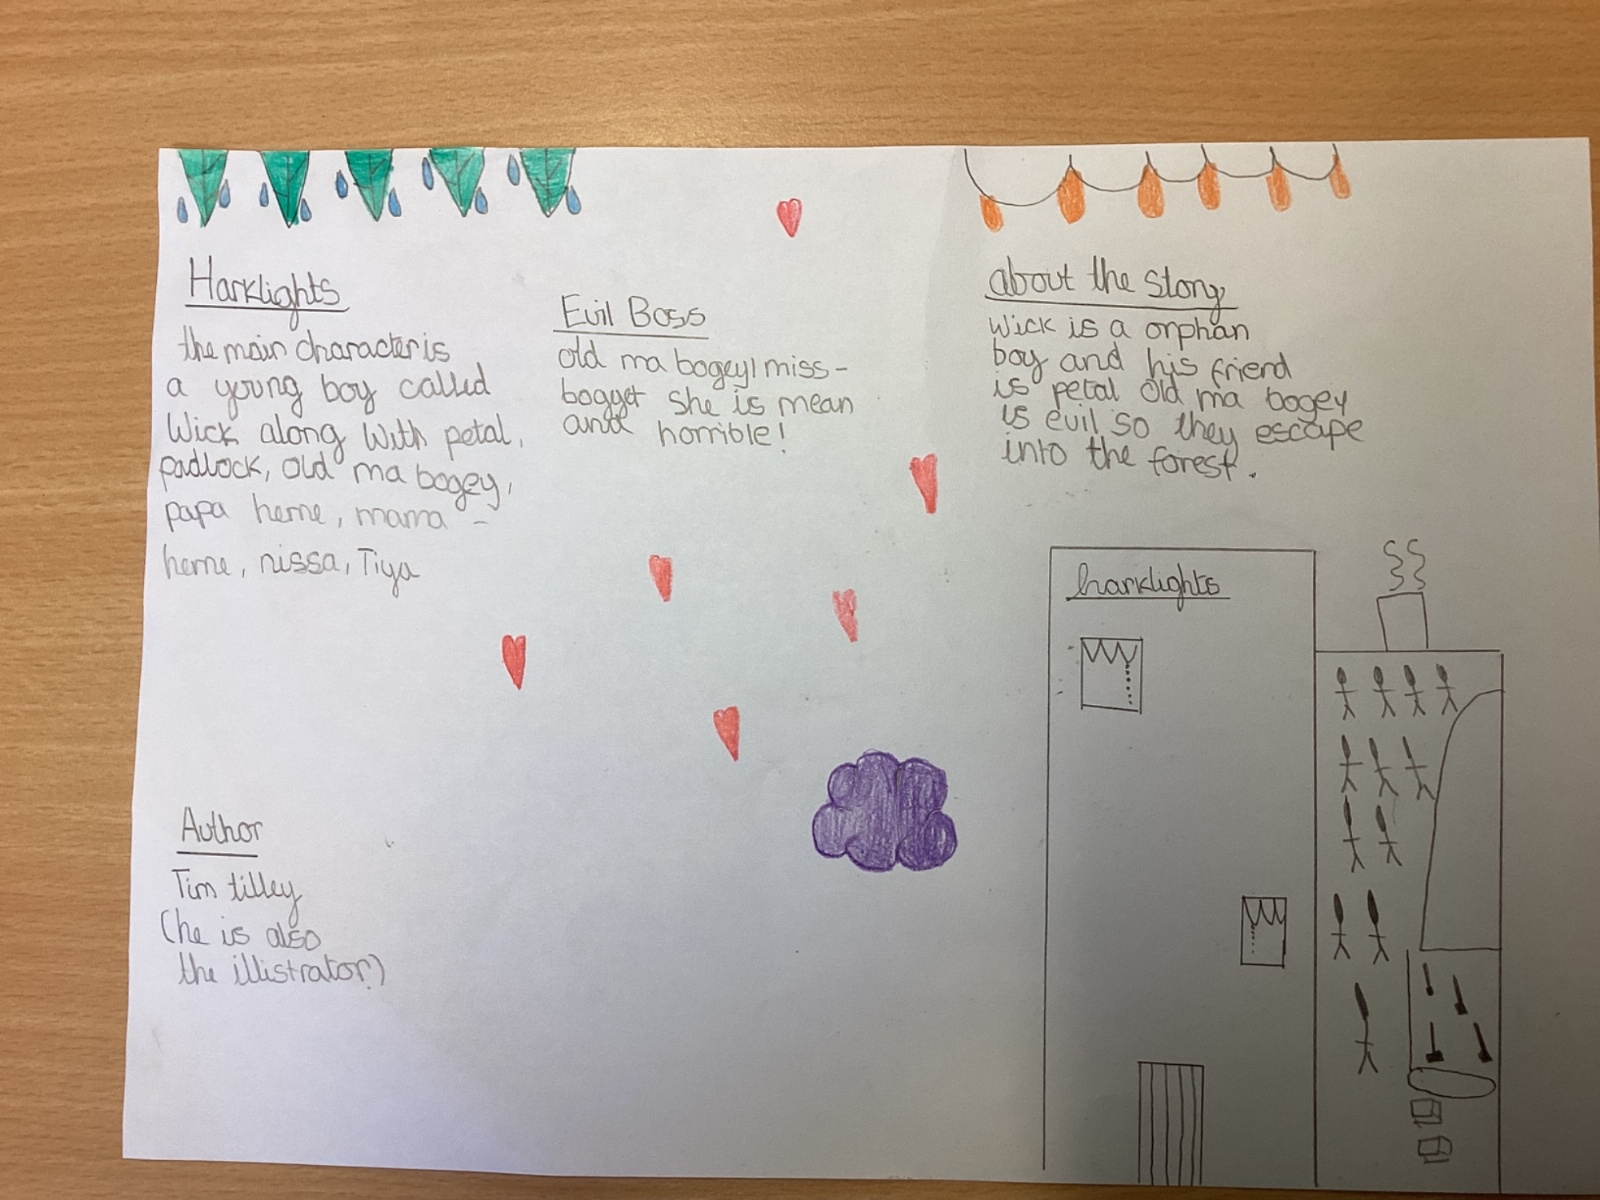 Harklights
the main character is
a young boy called
Wick along with petal,
padlock, old ma bogey,
papa herne, mama -
herne, nissa, Tiya
Evil Boss
old ma bogey/miss-
bogget she is mean
and horrible!
about the story
Wick is a orphan
boy and his friend
is petal old ma bogey
is evil so they escape
into the forest.
harklights
Author
Tim tilley
(he is also
the illistrator)